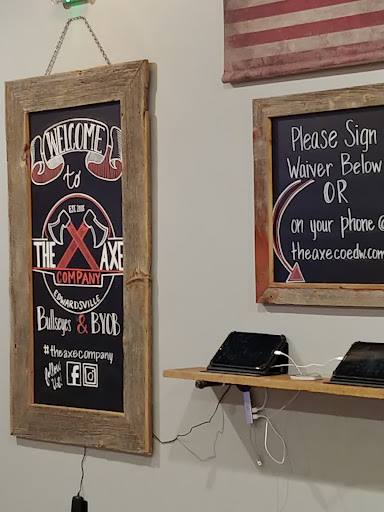 WELCOME
to
EST. 2018
THE AXE
COMPANY
EDWARDSVILLE
Bullseyes & BYOB
#theaxecompany
follow us!
Please Sign
Waiver Below
OR
on your phone @
theaxecoedw.com